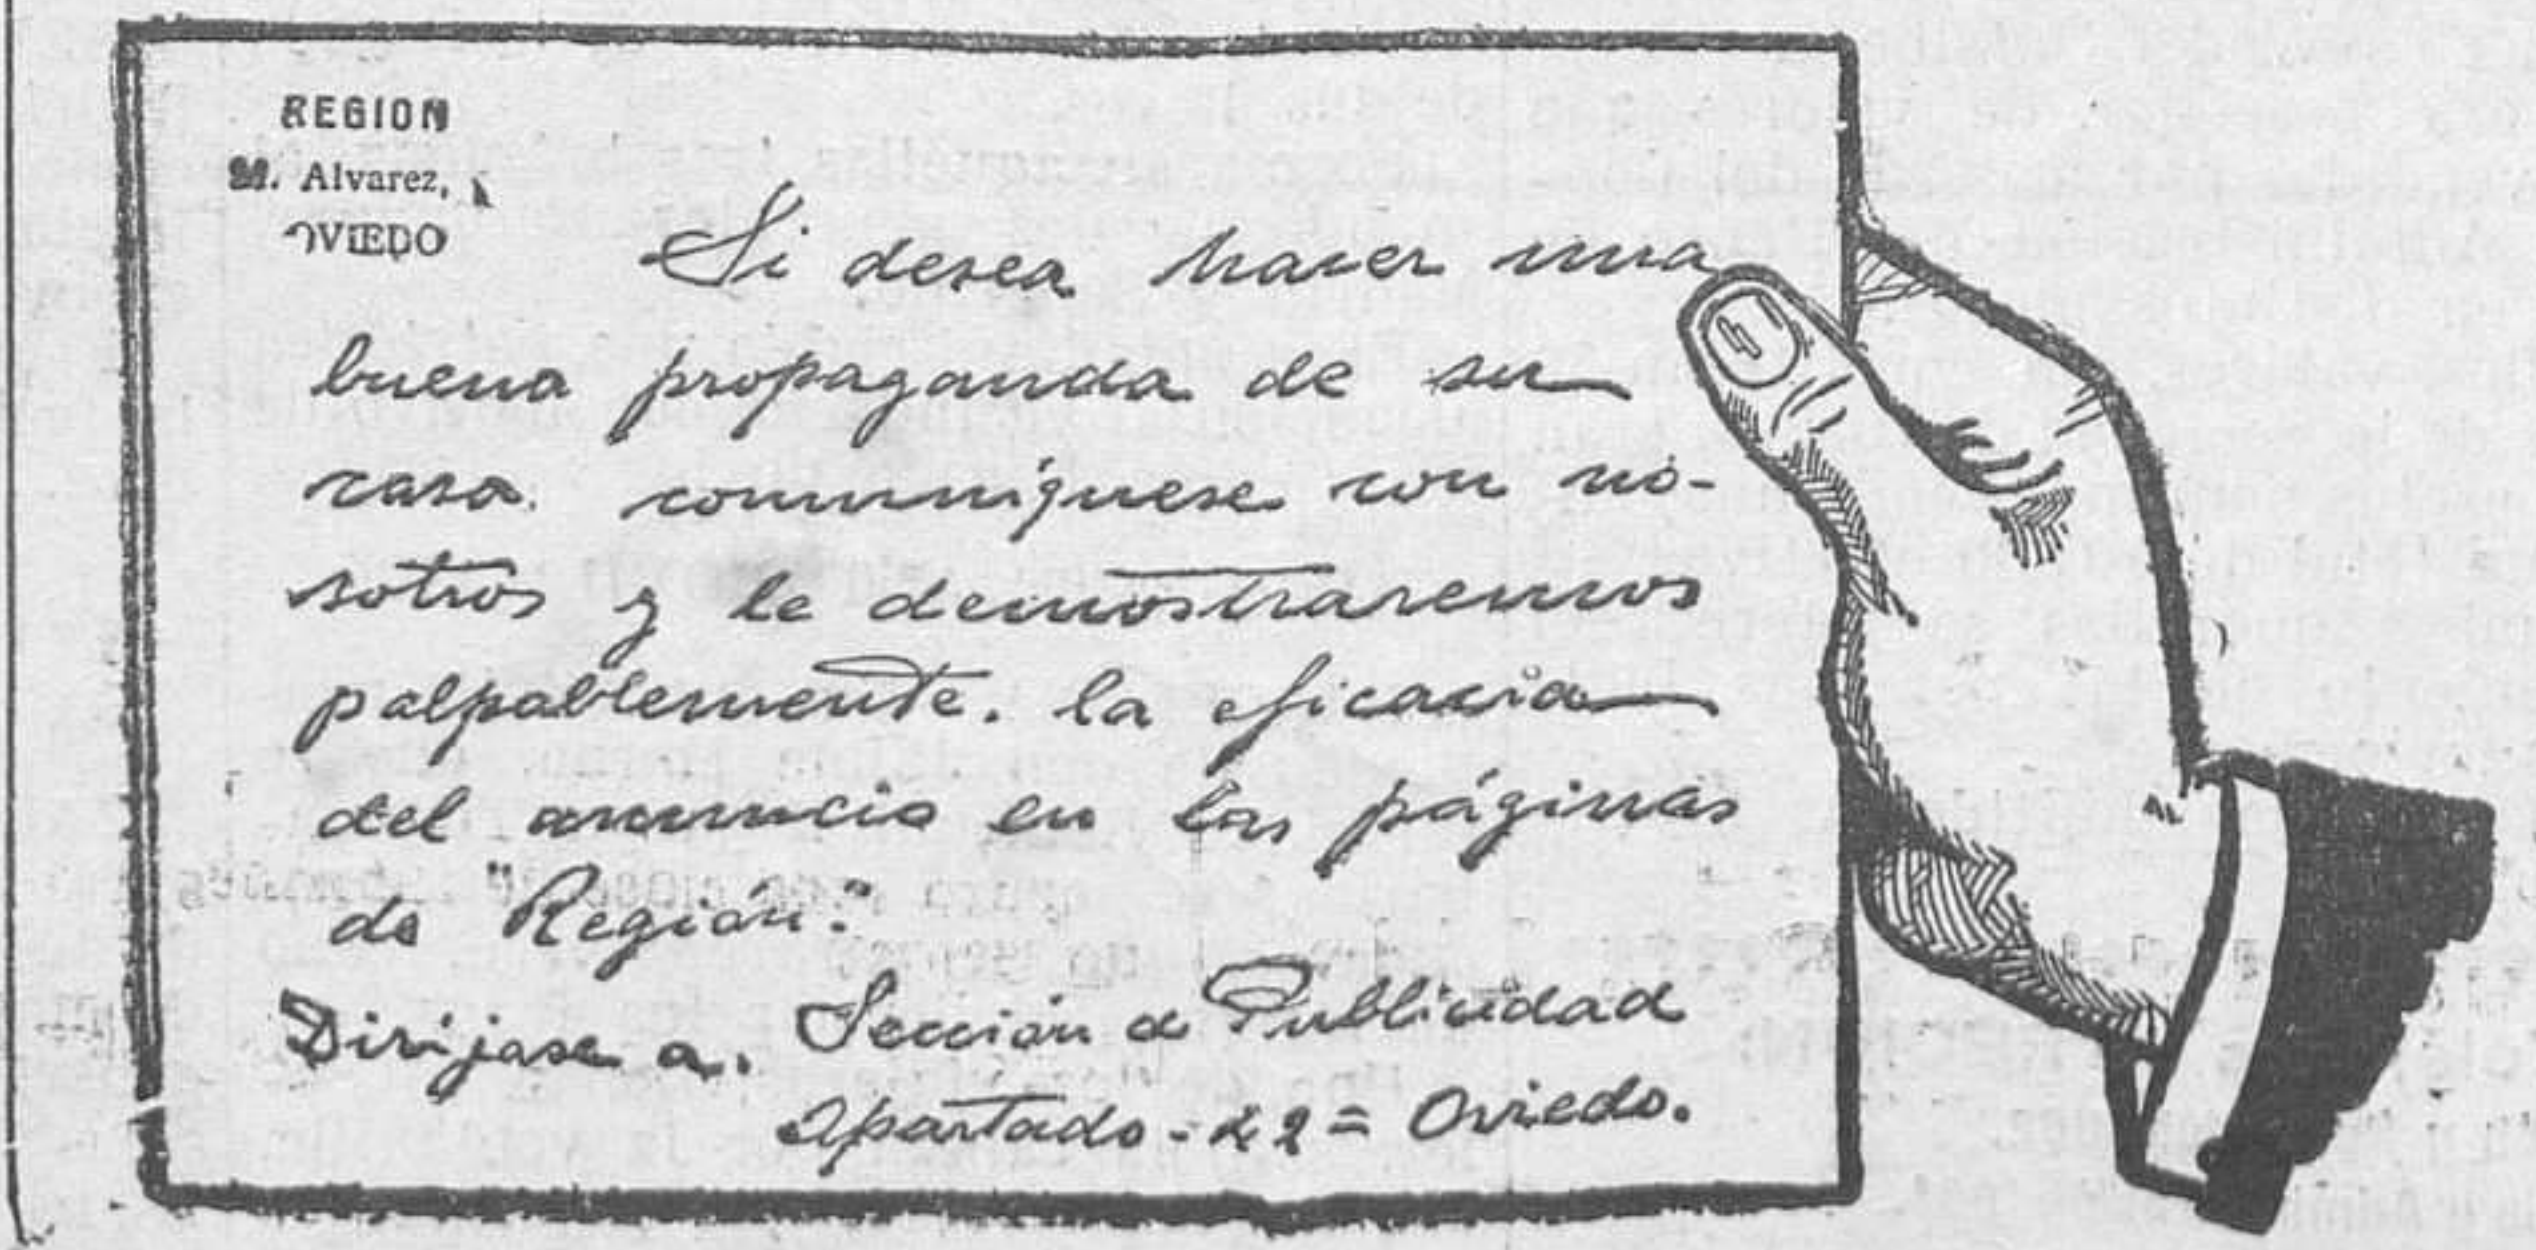 REGION
M. Alvarez,
OVIEDO
Si desea hacer una
buena propaganda de su
casa. comuníquese con no-
sotros y le demostraremos
palpablemente. la eficacia
del anuncio en las páginas
de "Región".
Diríjase a. Sección de Publicidad
Apartado - 42 = Oviedo.